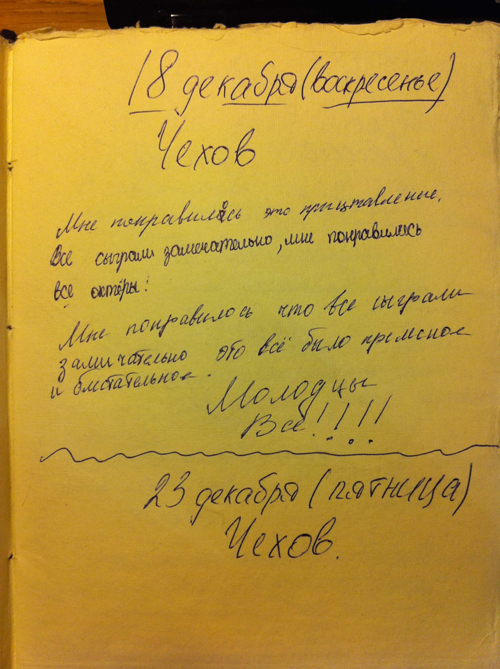 18 декабря (воскресенье)
Чехов
Мне понравилось это прицтавление.
Все сыграли замечательно, мне понравились
все актёры!
Мне понравилось что все сыграли
замичательно это всё было
и блистательное.
Молодцы
Все!!!!
23 декабря (пятница)
Чехов.